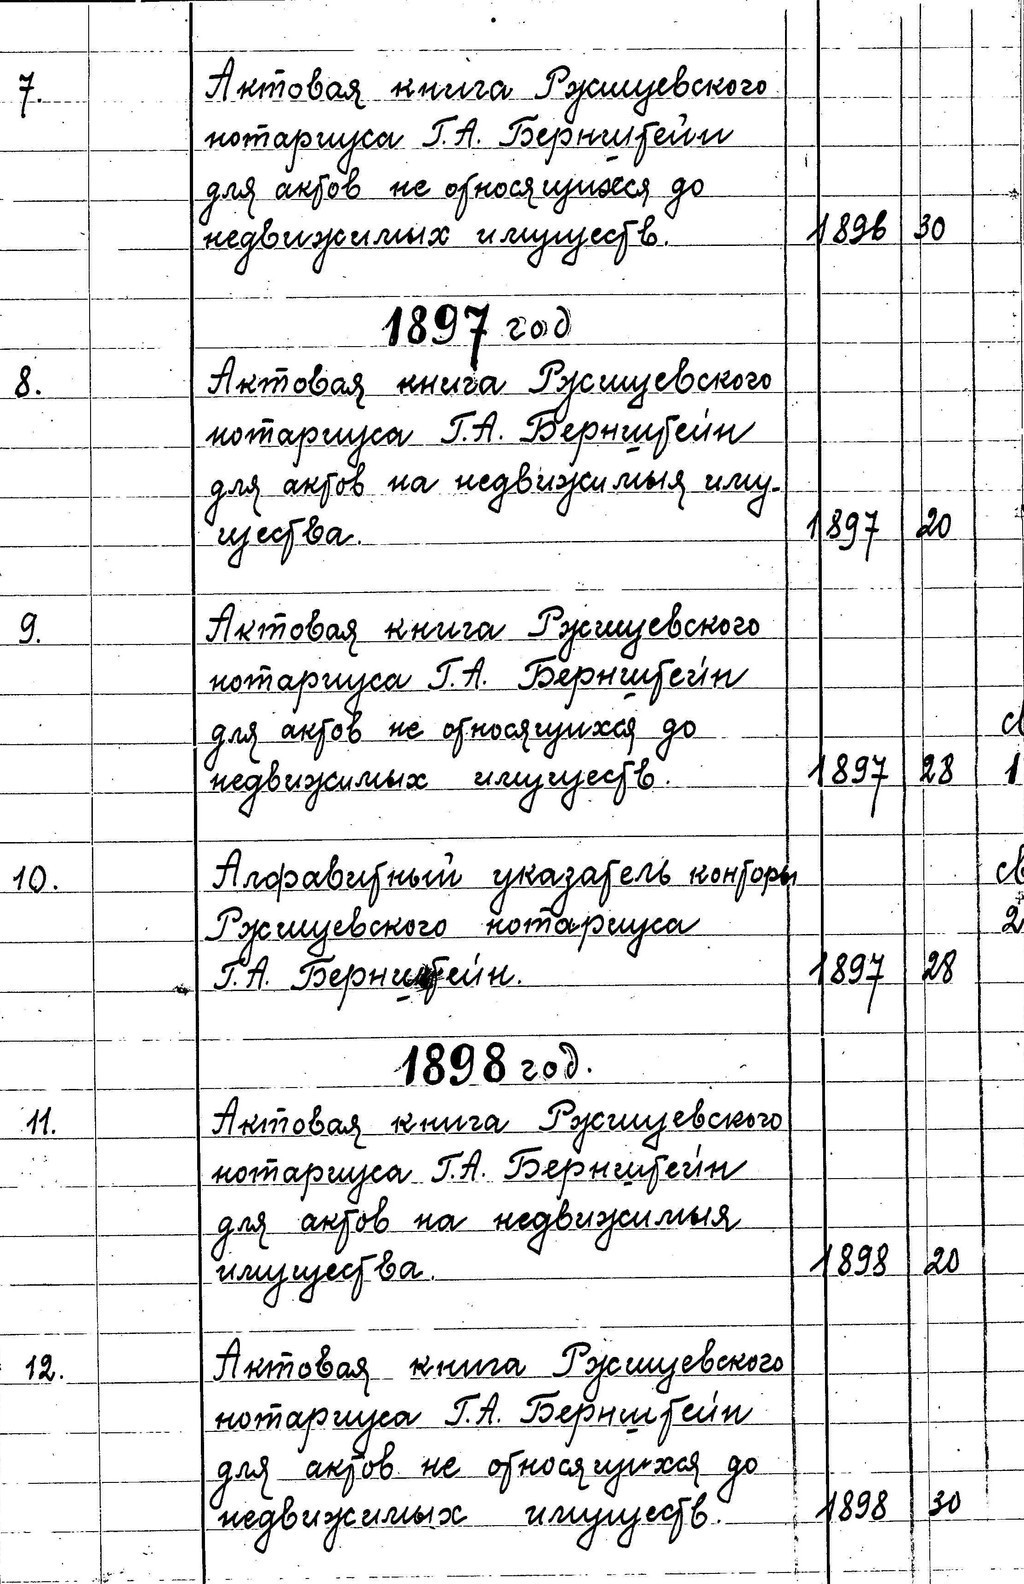 7. Актовая книга Ржищевского
нотариуса Г.А. Бернштейн
для актов не относящихся до
недвижимых имуществ. 1896 30
1897 год
8. Актовая книга Ржищевского
нотариуса Г.А. Бернштейн
для актов на недвижимыя иму-
щества. 1897 20
9. Актовая книга Ржищевского
нотариуса Г.А. Бернштейн
для актов не относящихся до
недвижимых имуществ. 1897 28 1
10. Алфавитный указатель конторы св
Ржищевского нотариуса 2
Г.А. Бернштейн. 1897 28
1898 год.
11. Актовая книга Ржищевского
нотариуса Г.А. Бернштейн
для актов на недвижимыя
имущества. 1898 20
12. Актовая книга Ржищевского
нотариуса Г.А. Бернштейн
для актов не относящихся до
недвижимых имуществ. 1898 30